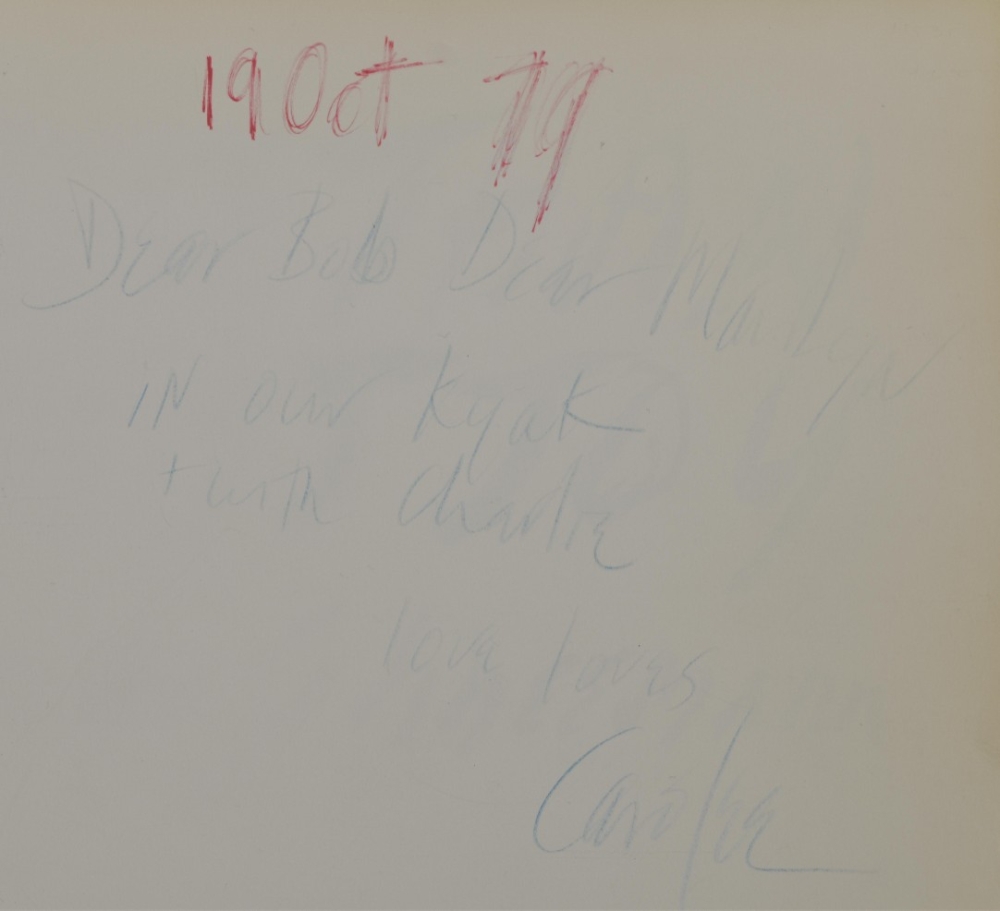 19 Oct 79
Dear Bob Dear Marilyn
iN our kyak
+ with charlie
love loves
Carolee